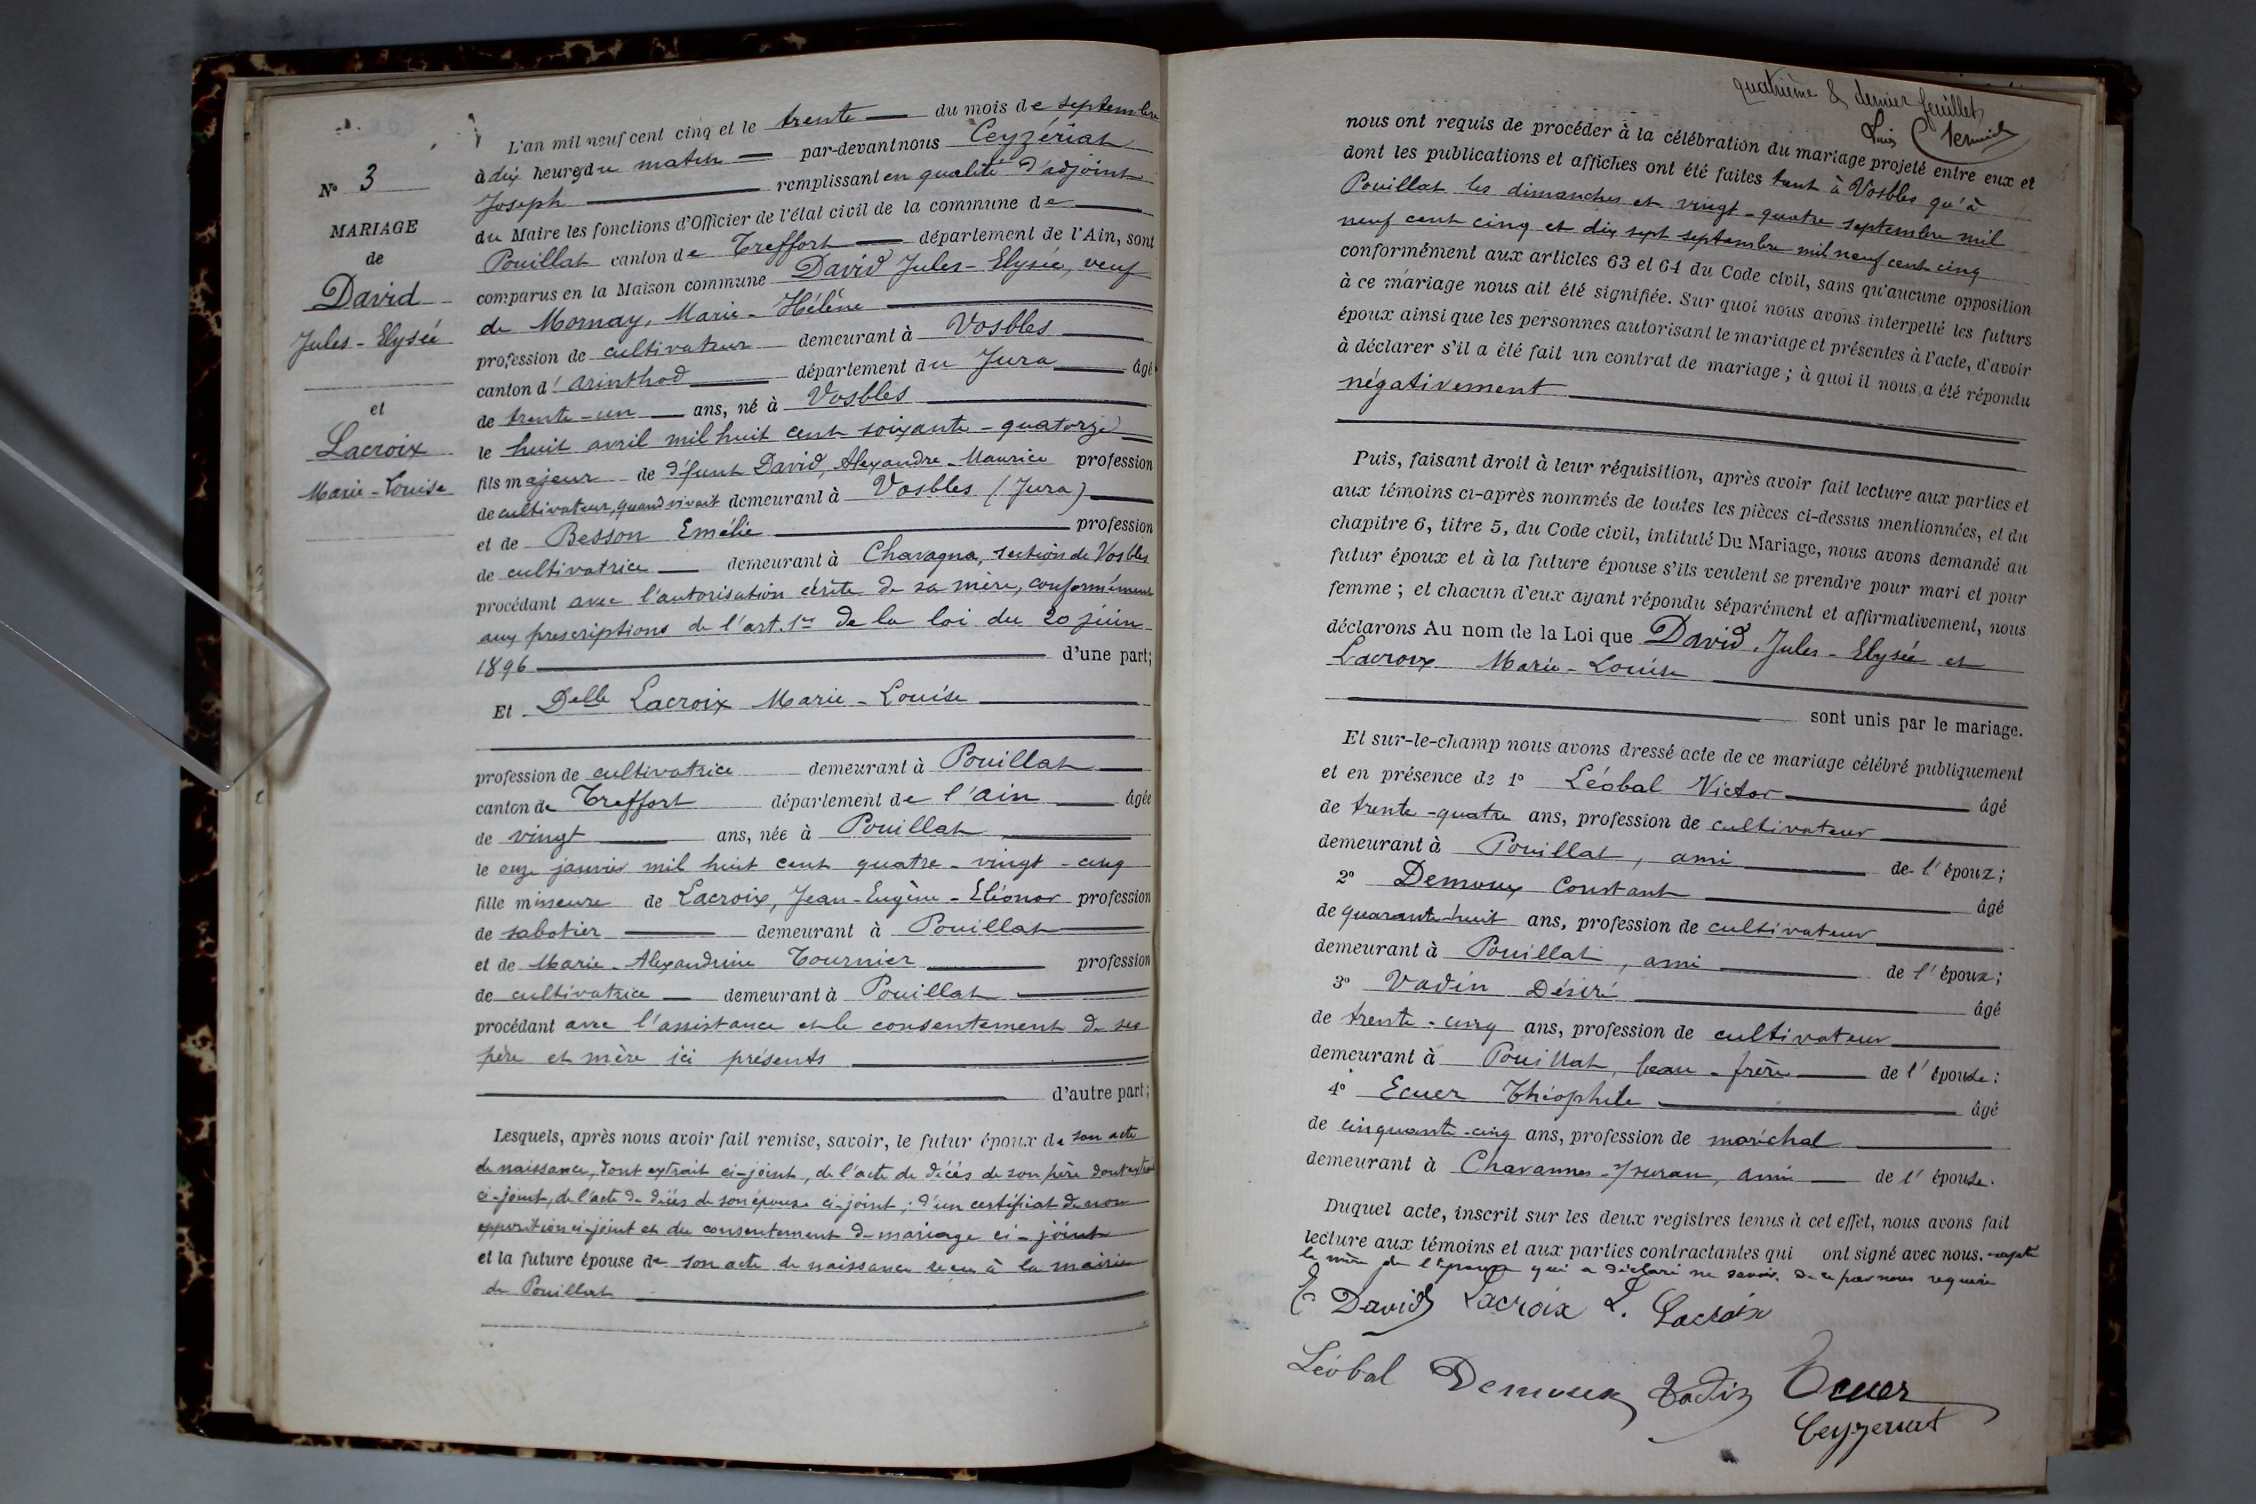 L'an mil neuf cent cinq et le trente du mois de septembre
à dix heures du matin par-devant nous Ceyzériat
Joseph remplissant en qualité d'adjoint
du Maire les fonctions d'Officier de l'état civil de la commune de
Pouillat canton de Treffort département de l'Ain, sont
comparus en la Maison commune David Jules-Elysée, veuf
de Mornay, Marie-Hélène
profession de cultivateur demeurant à Vosbles
canton d'Arinthod département du Jura âgé
de trente-un ans, né à Vosbles
le huit avril mil huit cent soixante-quatorze
fils majeur de défunt David, Alexandre-Maurice profession
de cultivateur, quand vivait demeurant à Vosbles (Jura)
et de Besson Emélie profession
de cultivatrice demeurant à Chavagna, section de Vosbles
procédant avec l'autorisation écrite de sa mère, conformément
aux prescriptions de l'art. 1er de la loi du 20 juin
1896 d'une part;
Et Delle Lacroix Marie-Louise
profession de cultivatrice demeurant à Pouillat
canton de Treffort département de l'Ain âgée
de vingt ans, née à Pouillat
le onze janvier mil huit cent quatre-vingt-cinq
fille mineure de Lacroix, Jean-Eugène-Eléonor profession
de sabotier demeurant à Pouillat
et de Marie-Alexandrine Tournier profession
de cultivatrice demeurant à Pouillat
procédant avec l'assistance et le consentement de ses
père et mère ici présents
d'autre part;
Lesquels, après nous avoir fait remise, savoir, le futur époux de son acte
de naissance, dont extrait ci-joint, de l'acte de décès de son père dont extrait
ci-joint, de l'acte de décès de son épouse ci-joint; d'un certificat de non
opposition ci-joint et du consentement de mariage ci-joint
et la future épouse de son acte de naissance reçu à la mairie
de Pouillat
N° 3
MARIAGE
de
David
Jules-Elysée
et
Lacroix
Marie-Louise
quatrième & dernier feuillet
nous ont requis de procéder à la célébration du mariage projeté entre eux et
dont les publications et affiches ont été faites tant à Vosbles qu'à
Pouillat les dimanches et vingt-quatre septembre mil
neuf cent cinq et dix sept septembre mil neuf cent cinq
conformément aux articles 63 et 64 du Code civil, sans qu'aucune opposition
à ce mariage nous ait été signifiée. Sur quoi nous avons interpellé les futurs
époux ainsi que les personnes autorisant le mariage et présentes à l'acte, d'avoir
à déclarer s'il a été fait un contrat de mariage; à quoi il nous a été répondu
négativement
Puis, faisant droit à leur réquisition, après avoir fait lecture aux parties et
aux témoins ci-après nommés de toutes les pièces ci-dessus mentionnées, et du
chapitre 6, titre 5, du Code civil, intitulé Du Mariage, nous avons demandé au
futur époux et à la future épouse s'ils veulent se prendre pour mari et pour
femme; et chacun d'eux ayant répondu séparément et affirmativement, nous
déclarons Au nom de la Loi que David, Jules-Elysée et
Lacroix Marie-Louise
sont unis par le mariage.
Et sur-le-champ nous avons dressé acte de ce mariage célébré publiquement
et en présence de 1° Léobal Victor âgé
de trente-quatre ans, profession de cultivateur
demeurant à Pouillat, ami de l'époux;
2° Demoux Constant âgé
de quarante-huit ans, profession de cultivateur
demeurant à Pouillat, ami de l'époux;
3° Vadin Désiré âgé
de trente-cinq ans, profession de cultivateur
demeurant à Pouillat, beau-frère de l'épouse:
4° Ecuer Théophile âgé
de cinquante-cinq ans, profession de maréchal
demeurant à Chavannes-Suran, ami de l'épouse.
Duquel acte, inscrit sur les deux registres tenus à cet effet, nous avons fait
lecture aux témoins et aux parties contractantes qui ont signé avec nous. excepté
la mère de l'épouse qui a déclaré ne savoir, de ce par nous requise
E David Lacroix L. Lacroix
Léobal Demoux Vadin Ecuer
Ceyzeriat